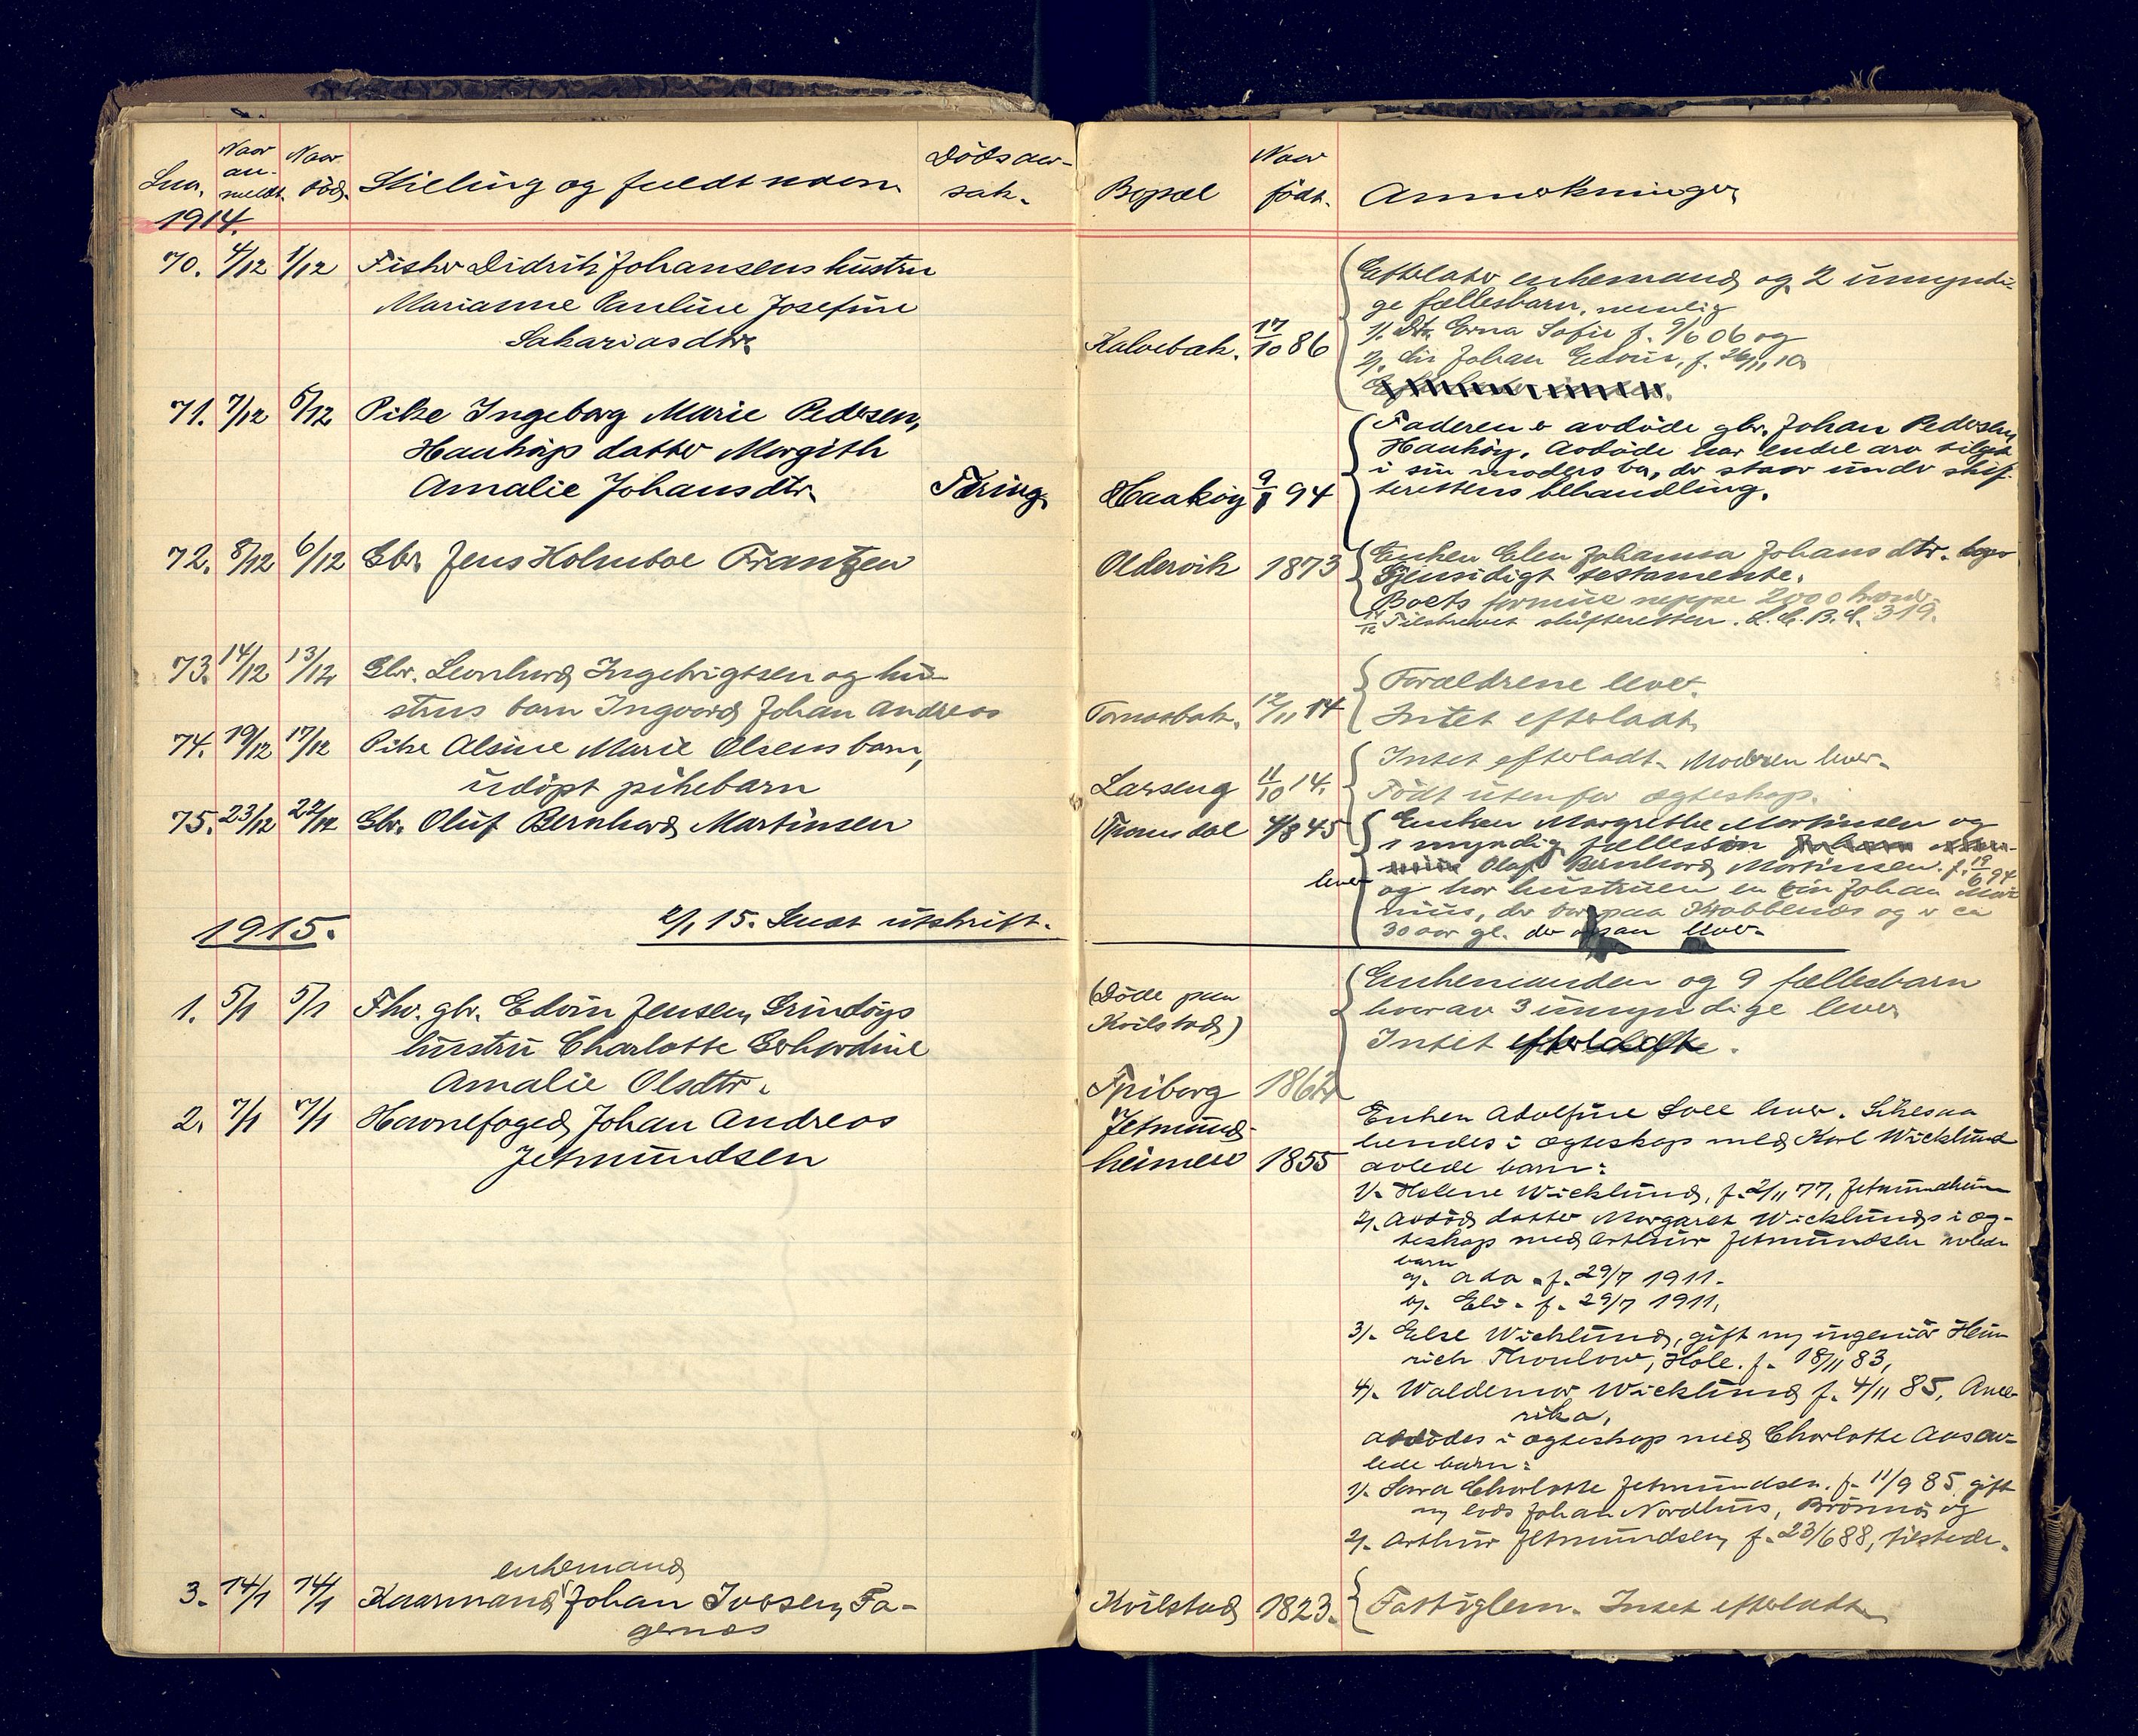 Lnr.
Naar an-
meldt.
Naar
död.
Stilling og fuldt navn
Dödsaar-
sak.
Bopæl
Naar
født.
Anmerkninger
1914.
70. 4/12 1/12 Fisker Didrik Johansens hustru
Marianne Pauline Josefine
Sakariasdtr.
Kalvebak. 17/10 86
Efterlater enkemand og 2 umyndi-
ge fællesbarn, nemlig
1/. Dtr. Erna Sofie f. 9/6 06 og
2/. Johan Edvin, f. 26/11 10
71. 7/12 5/12 Pike Ingeborg Marie Pedersen,
Haakøy datter Margith
Amalie Johansdtr.
Tæring.
Haakøy 94
Faderen er avdöde gbr. Johan Pedersen
Haakøy. Avdöde har endel arv tilgode
i sin moders bo, der staar under skif-
terettens behandling.
72. 8/12 6/12 Gbr. Jens Holmboe Frantzen
Oldervik 1873
Enken Elen Johanna Johansdtr.
Gjensidigt testamente.
Boets formue neppe 2000 kroner.
14/12 Tilskrevet skifteretten. 319.
73. 14/12 13/12 Gbr. Leonhard Ingebrigtsen og hu-
strus barn Ingvard Johan Andreas
12/11 14
Forældrene lever.
Intet efterladt.
74. 19/12 17/12 Pike Alsine Marie Olsens barn,
udöpt pikebarn
Larseng 11/10 14.
Intet efterladt. Moderen lever.
Födt utenfor ægteskap.
75. 23/12 22/12 Gbr. Oluf Bernhard Martinsen
4/8 45
Enken Margrethe Martinsen og
1 myndig fællessön
Olaf Bernhard Martinsen. f. 19/6 94
lever
og har hustruen en sön Johan
nius, der bor paa Krabbenes og er ca
30 aar gl. der lever.
1915.
2/1 15. Sendt utskrift.
1. 5/1 5/1 Fhv. gbr. Edvin Jensen, Grindöys
hustru Charlotte Gerhardine
Amalie Olsdtr.
(Döde paa
Kvilstad)
Spiborg 1862
Enkemanden og 9 fællesbarn
hvorav 3 umyndige lever
Intet efterladt.
2. 7/1 7/1 Havnefoged Johan Andreas
Jetmundsen
Jetmund-
heimen 1855
Enken Adolfine Soll lever. Likesaa
hendes i ægteskap med Karl Wicklund
avlede barn:
1/. Helene Wicklund, f. 2/11 77, Jetmundheim
2/. Avdöd datter Margaret Wicklunds i æg-
teskap med Arthur Jetmundsen avlede
barn
a/. Ada. f. 29/7 1911.
b/. Eli. f. 29/7 1911.
3/. Else Wicklund, gift m/ ingeniör Hein-
rich Thoulow, Hole. f. 18/11 83,
4/. Waldemar Wicklund f. 4/11 85, Ame-
rika,
Avdödes i ægteskap med Charlotte Aas av-
lede barn:
1/. Sara Charlotte Jetmundsen. f. 11/9 85, gift
m/ lods Johan Nordhus, Brönnö og
2/. Arthur Jetmundsen, f. 23/6 88, tilstede.
enkemand
3. 14/1 14/1 Kaarmand Johan Iversen, Fa-
gernes
Kvilstad 1823.
Fattiglem. Intet efterladt.